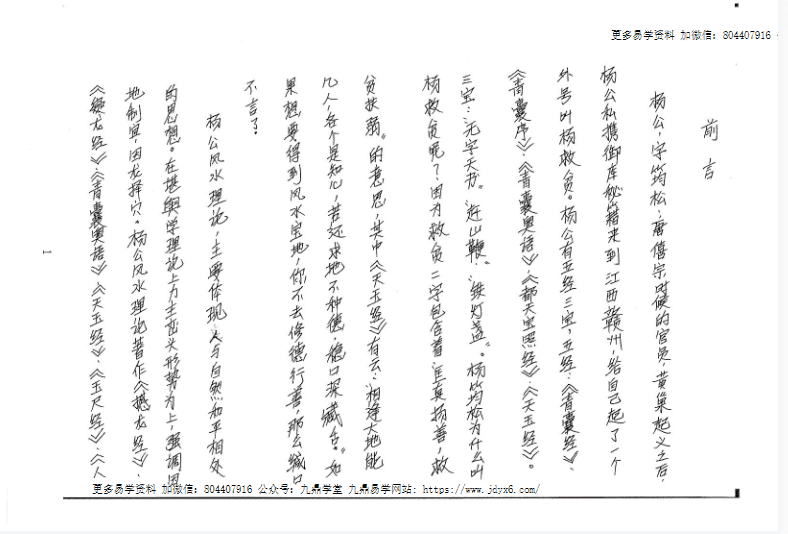 更多易学资料 加微信：804407916
前言
杨公，字筠松，唐僖宗时候的官员，黄巢起义之后，
杨公私携御库秘籍来到江西赣州，给自己起了一个
外号叫杨救贫。杨公有五经三宝，五经：《青囊经》、
《青囊序》、《青囊奥语》、《都天宝照经》、《天玉经》。
三宝：“无字天书”、“赶山鞭”、“铁灯盏”。杨筠松为什么叫
杨救贫呢？因为救贫二字包含着匡真扬善，救
贫扶弱”的意思，其中《天玉经》有云：“相逢大地能
几人，各个是知心，若还求地不种德，稳口深藏舌。”如
果想要得到风水宝地，你不去修德行善，那么缄口
不言了。
杨公风水理论，主要体现人与自然和平相处
的思想。在堪舆学理论上力主峦头形势为上，强调因
地制宜，因龙择穴。杨公风水理论著作《撼龙经》、
《疑龙经》、《青囊奥语》、《天玉经》、《玉尺经》、《人
1
更多易学资料 加微信：804407916 公众号：九鼎学堂 九鼎易学网站：https://www.jdyx6.com/